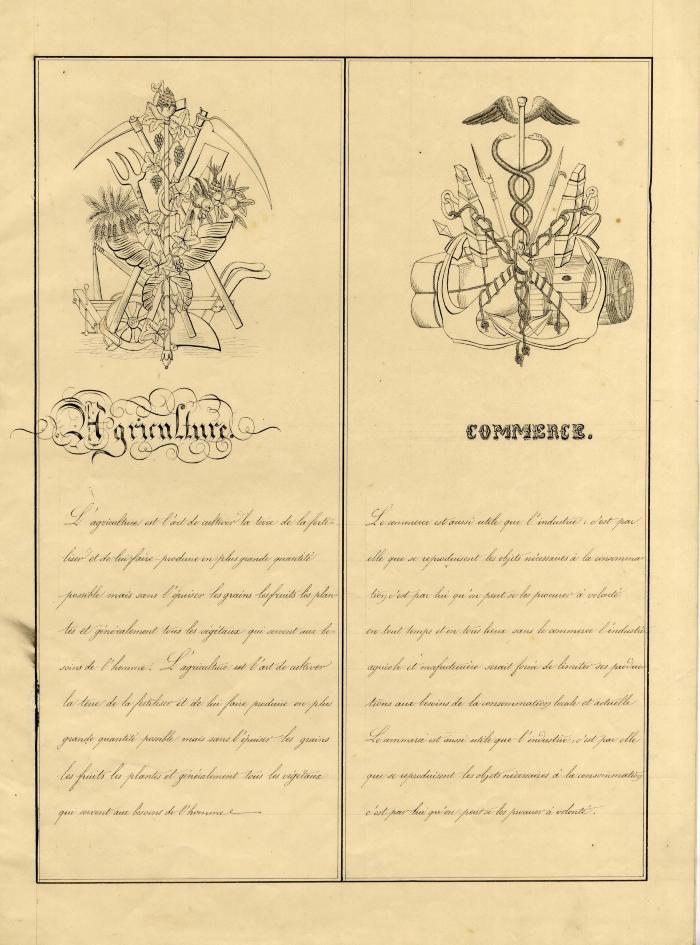 Agriculture.
L'agriculture est l'art de cultiver la terre de la ferti-
liser et de lui faire produire en plus grande quantité
possible mais sans l'épuiser les grains les fruits les plan-
tes et généralement tous les végétaux qui servent aux be-
soins de l'homme. L'agriculture est l'art de cultiver
la terre de la fertiliser et de lui faire produire en plus
grande quantité possible mais sans l'épuiser les grains
les fruits les plantes et généralement tous les végétaux
qui servent aux besoins de l'homme
COMMERCE.
Le commerce est aussi utile que l'industrie : c'est par
elle que se reproduisent les objets nécessaires à la consomma-
tion, c'est par lui qu'on peut se les procurer à volonté
en tout temps et en tous lieux sans le commerce l'industrie
agricole et manufacturière serait forcée de limiter ses produc-
tions aux besoins de la consommation locale et actuelle
Le commerce est aussi utile que l'industrie : c'est par elle
que se reproduisent les objets nécessaires à la consommation
c'est par lui qu'on peut se les procurer à volonté.